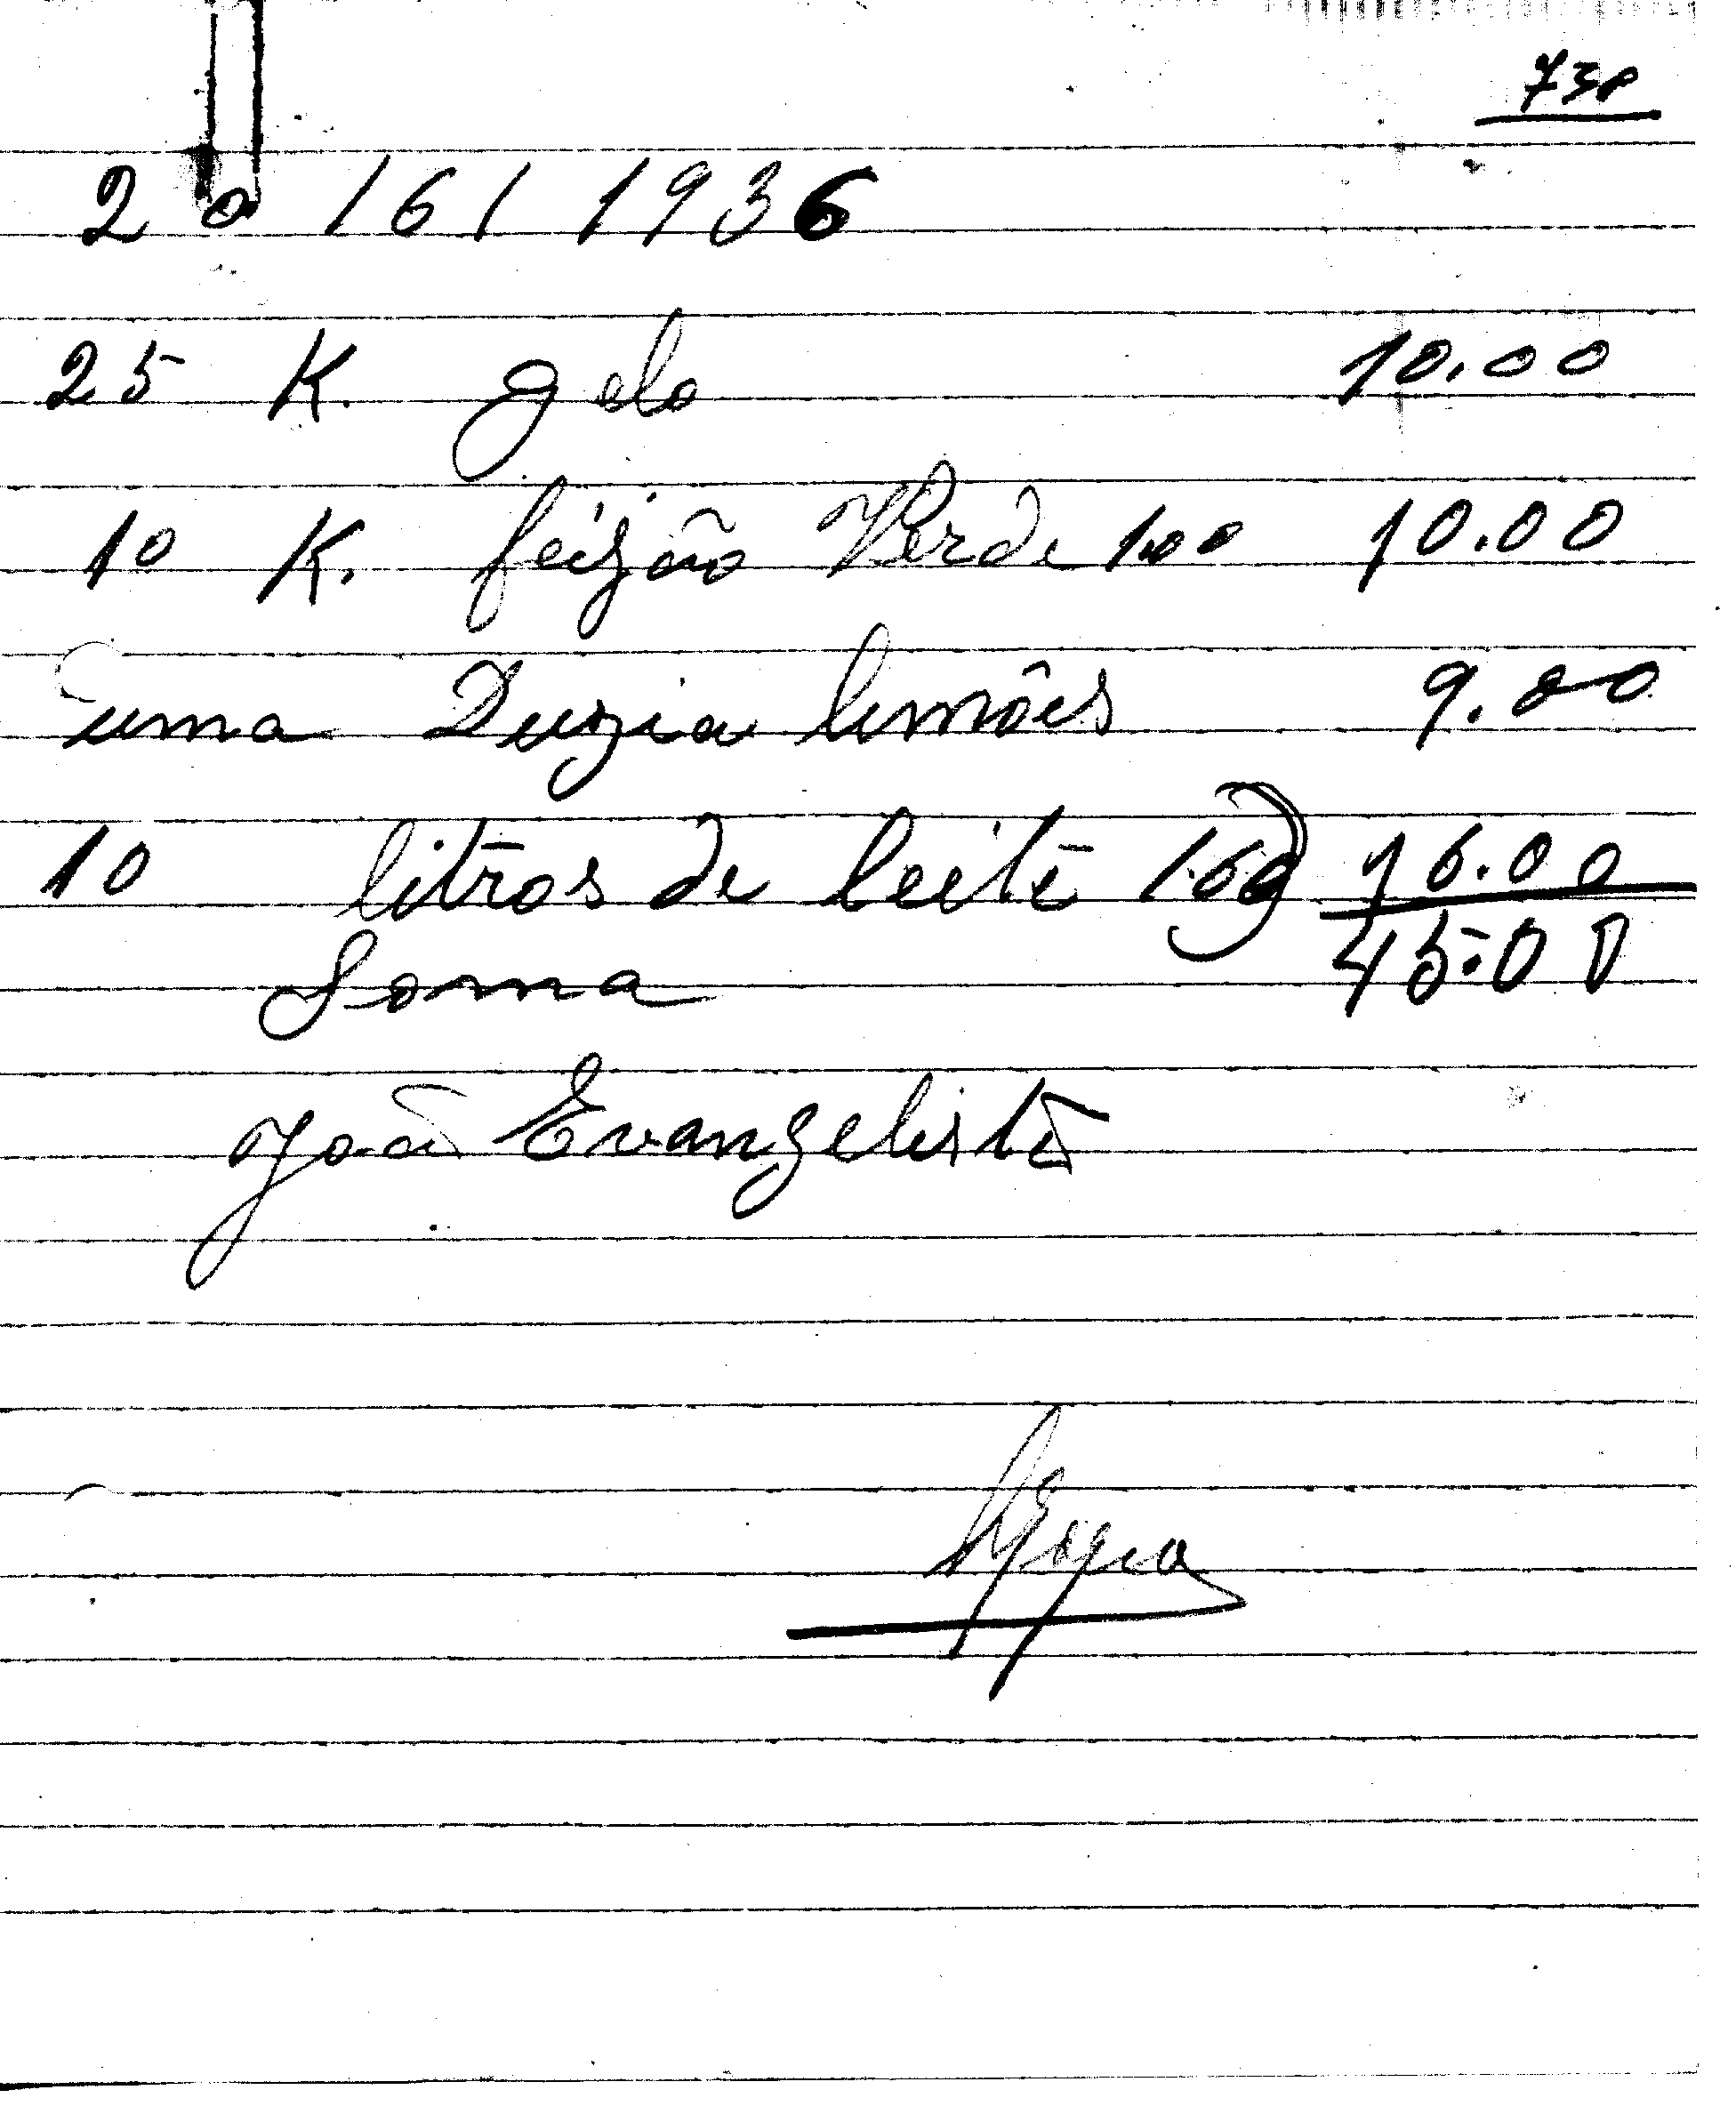 20/6/1936
25 K. gelo 10.00
10 K. feijão Verde 1.00 10.00
uma Duzia limões 9.00
10 litros de leite 1.60 16.00
Soma 45.00
João Evangelista